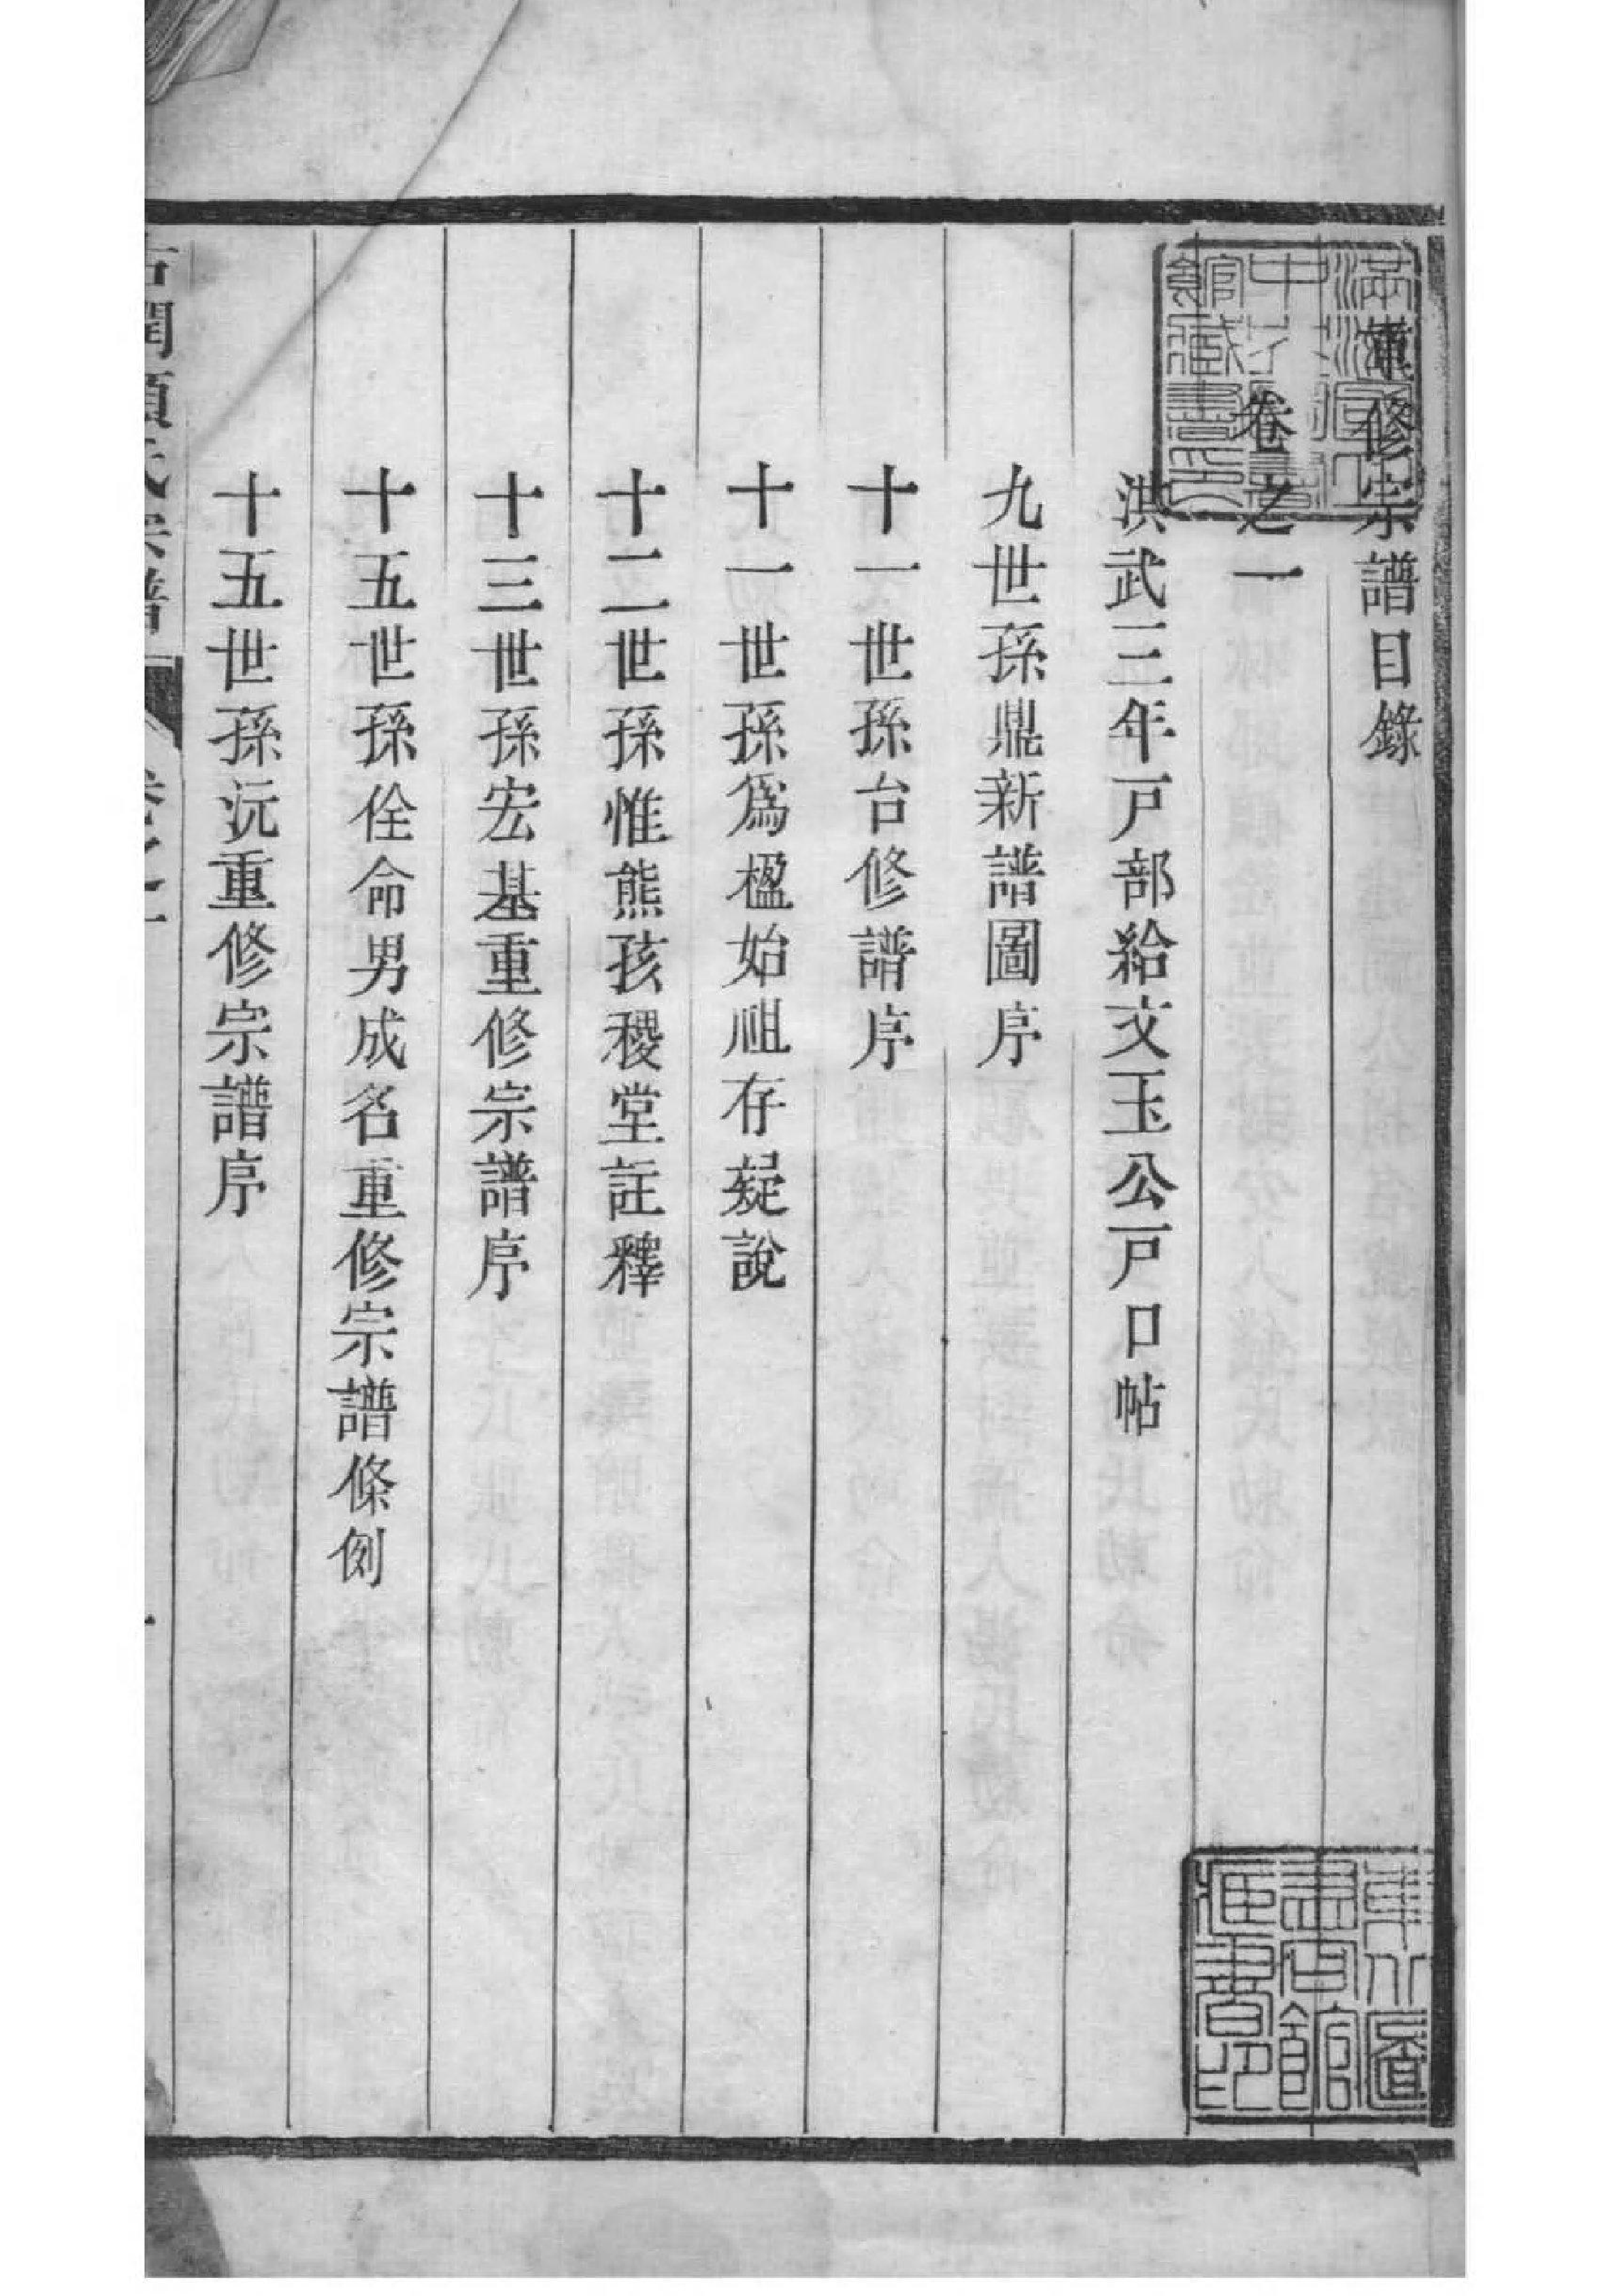 重修宗譜目錄
卷之一
洪武三年戸部給文玉公戸口帖
九世孫鼎新譜圖序
十一世孫台修譜序
十一世孫爲楹始祖存疑說
十二世孫惟熊孩稷堂註釋
十三世孫宏基重修宗譜序
十五世孫佺命男成名重修宗譜條例
十五世孫沅重修宗譜序
氏宗譜
卷之一